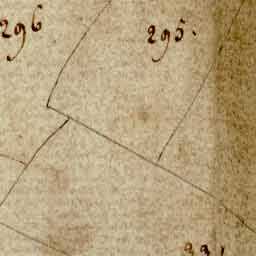 296
295.